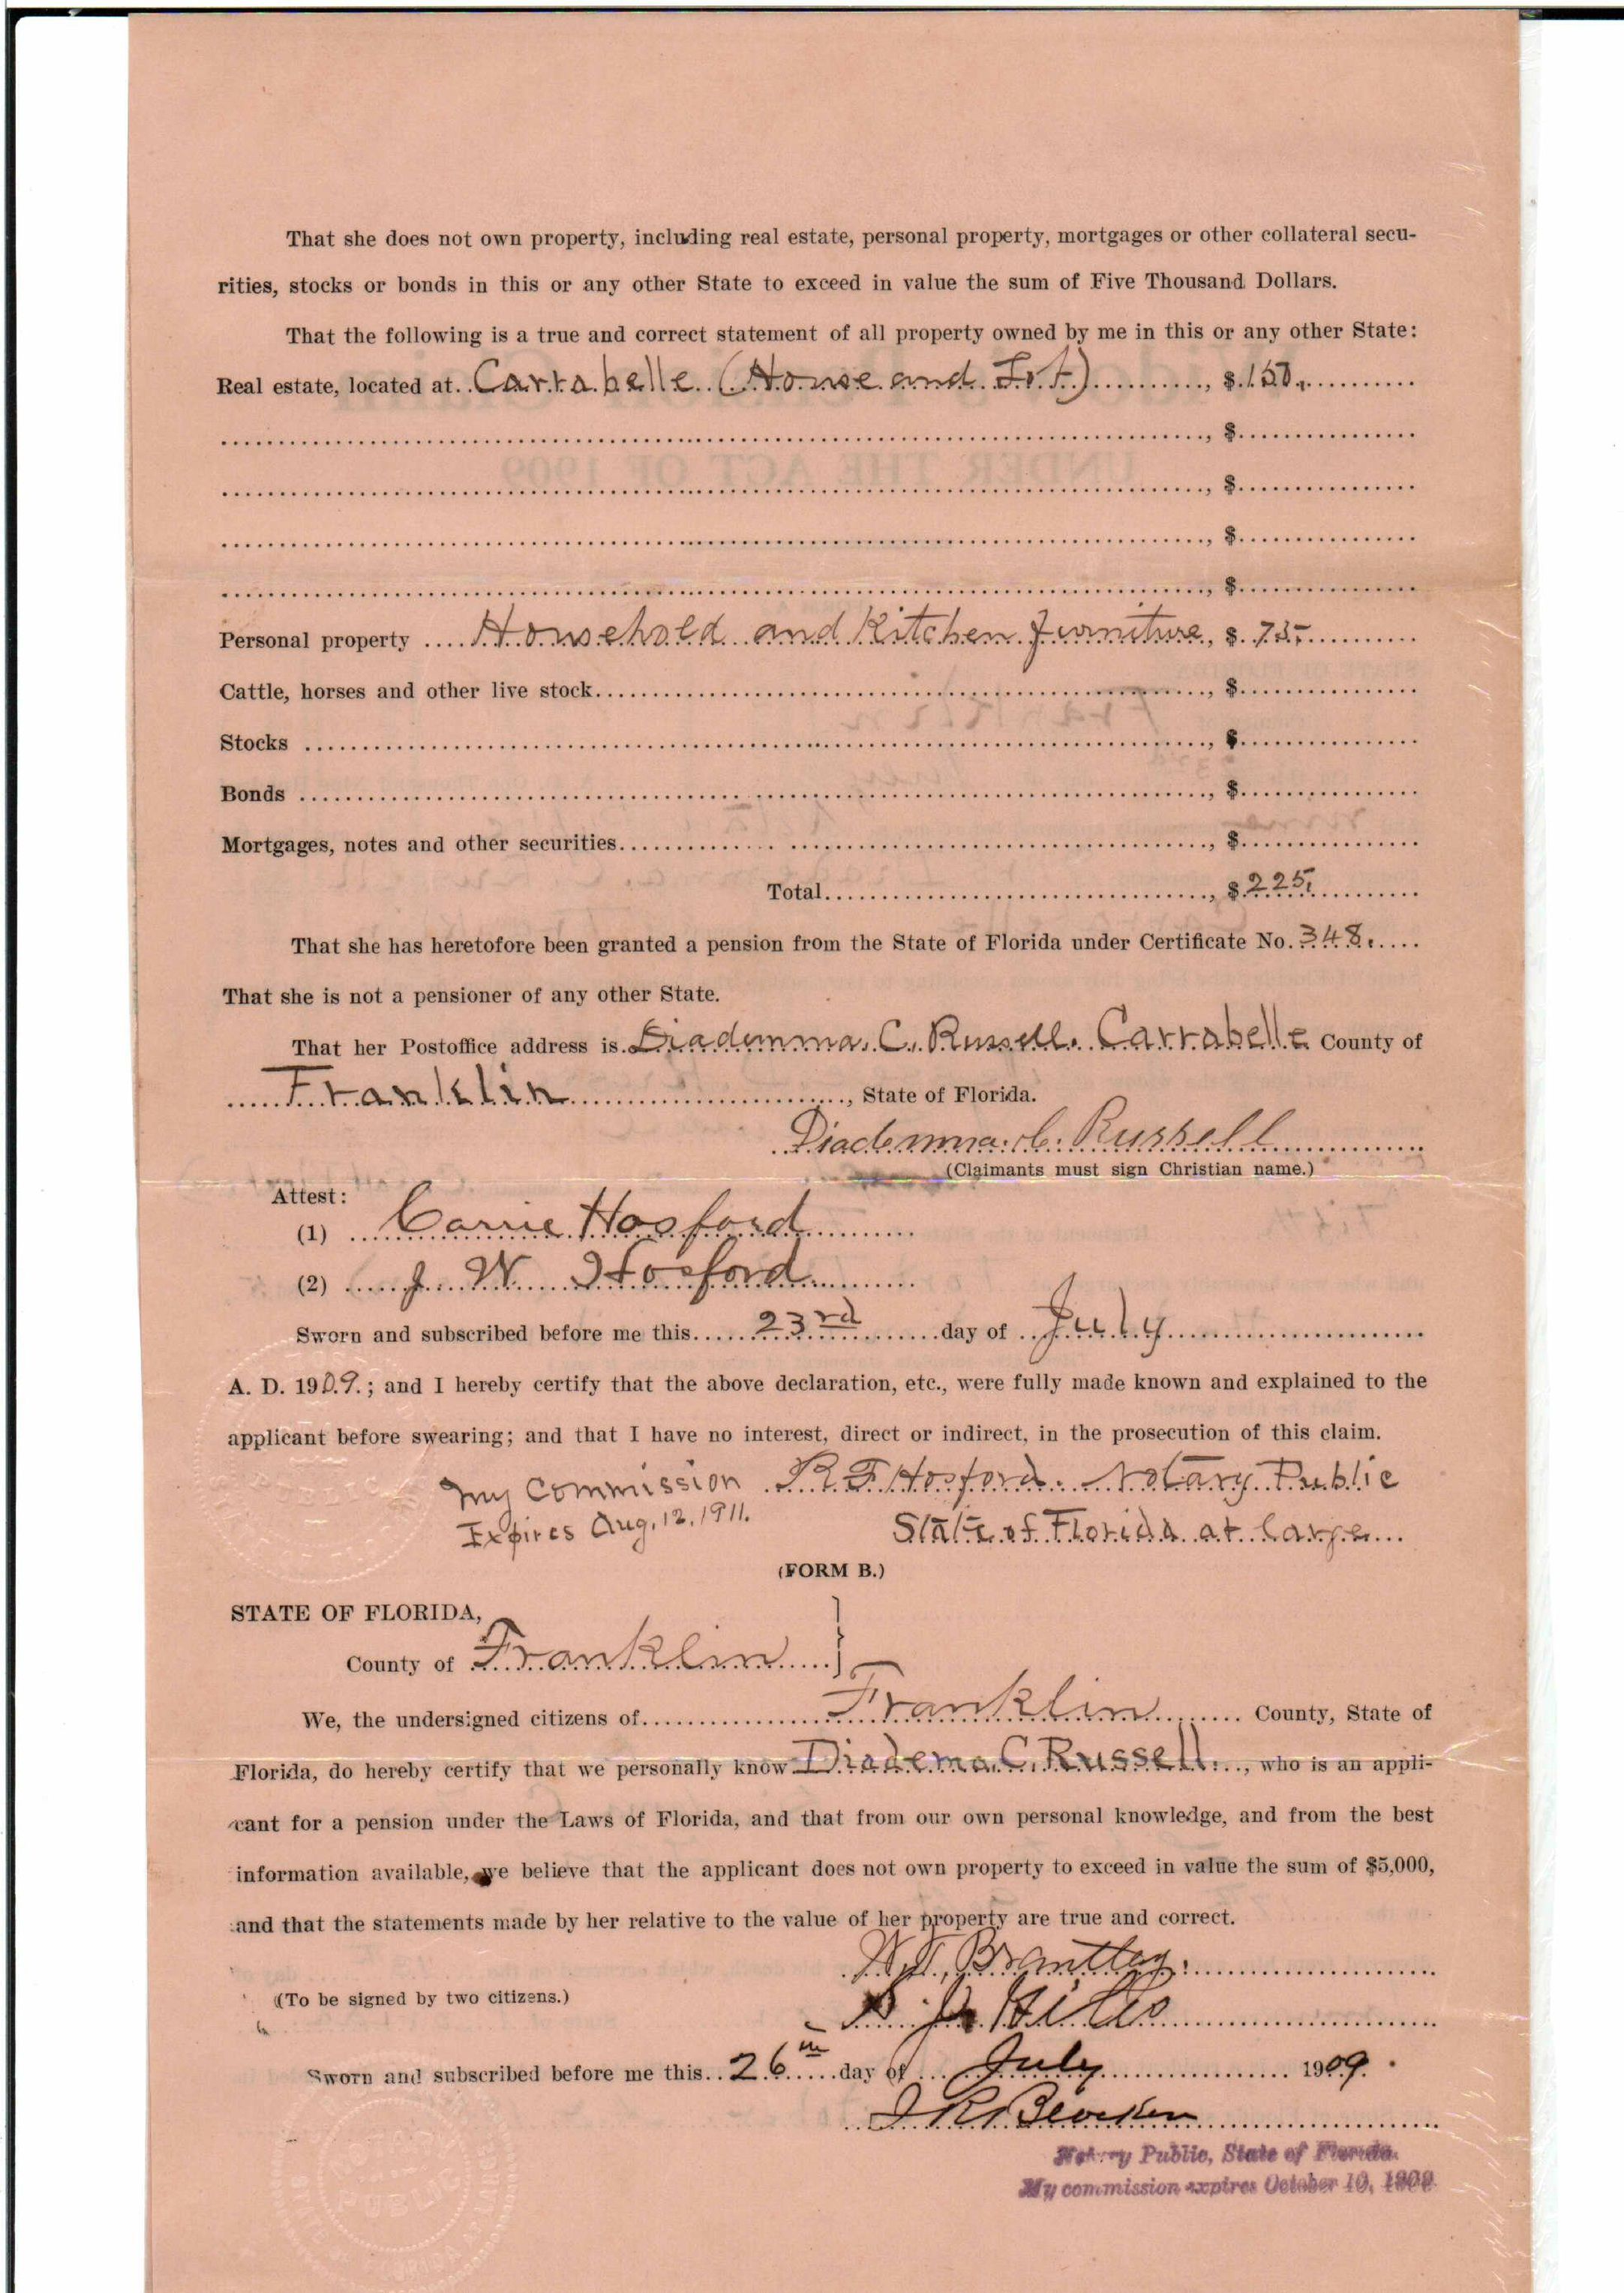 That she does not own property, including real estate, personal property, mortgages or other collateral secu-
rities, stocks or bonds in this or any other State to exceed in value the sum of Five Thousand Dollars.
That the following is a true and correct statement of all property owned by me in this or any other State:
Real estate, located at Carrabelle (House and Lot), $ 150.
, $
UNDER THE ACT OF 1909
, $
, $
, $
Personal property Household and Kitchen furniture, $ 75-
Cattle, horses and other live stock, $
Stocks, $
Bonds, $
Mortgages, notes and other securities, $
Total, $ 225.
That she has heretofore been granted a pension from the State of Florida under Certificate No. 348.
That she is not a pensioner of any other State.
That her Postoffice address is Diademma, C. Russell. Carrabelle County of
Franklin, State of Florida.
Diademma. C. Russell
(Claimants must sign Christian name.)
Attest:
(1) Carrie Hosford
(2) J. W. Hosford
Sworn and subscribed before me this 23rd day of July
A. D. 1909.; and I hereby certify that the above declaration, etc., were fully made known and explained to the
applicant before swearing; and that I have no interest, direct or indirect, in the prosecution of this claim.
My Commission R. F. Hosford. Notary Public
Expires Aug. 12, 1911. State of Florida at large
(FORM B.)
STATE OF FLORIDA,
County of Franklin
We, the undersigned citizens of Franklin County, State of
Florida, do hereby certify that we personally know Diadema C. Russell., who is an appli-
cant for a pension under the Laws of Florida, and that from our own personal knowledge, and from the best
information available, we believe that the applicant does not own property to exceed in value the sum of $5,000,
and that the statements made by her relative to the value of her property are true and correct.
Brantley
(To be signed by two citizens.)
Sworn and subscribed before me this 26th day of July 1909.
Notary Public, State of Florida.
My commission expires October 10, 1909